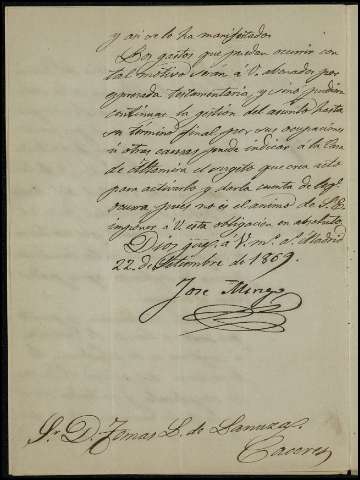 y así se lo ha manifestado
Los gastos que puedan ocurrir con
tal motivo serán á V. abonados por
expresada testamentaria, y si no pudiera
continuar la gestion del asunto hasta
su término final por sus ocupaciones
ú otras causas pueda indicar a la Casa
de Altamira el sugeto que crea util
para activarlo y darla cuenta de
pues no es el animo de S.E.
imponer á V. esta obligacion en absoluto.
Dios gue. á V. m.s a.s Madrid
22 de Setiembre de 1869.
Jose Mingo
Sr. D. Tomas L. de Lanuza.
Caceres